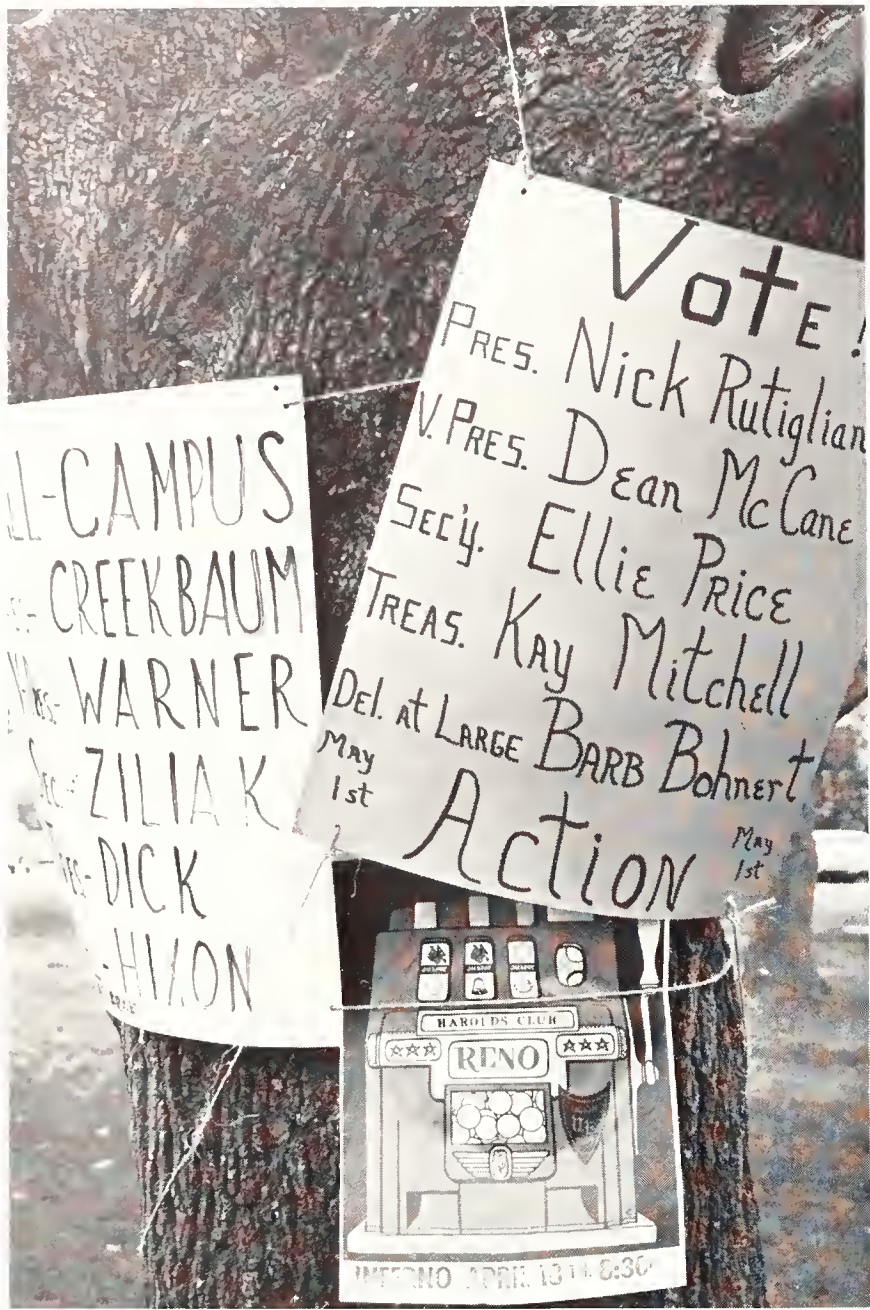 LL-CAMPUS
CREEKBAUM
WARNER
SEC.- ZILIAK
DICK
-HIXON
VOTE!
PRES. Nick Rutiglian
V. PRES. DEan McCanE
SEC'y. ElliE PRicE
TREAS. KAy Mitchell
DEl. At LARGE BARB BohnERt
MAy
1st
ActioN
MAy
1st
HAROLDS CLUB
RENO
INFERNO APRIL 13 8:30